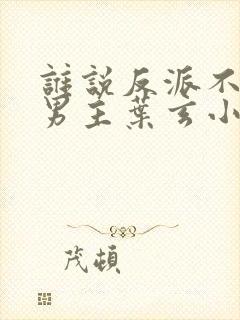 誰說反派不
男主葉玄小
茂頓